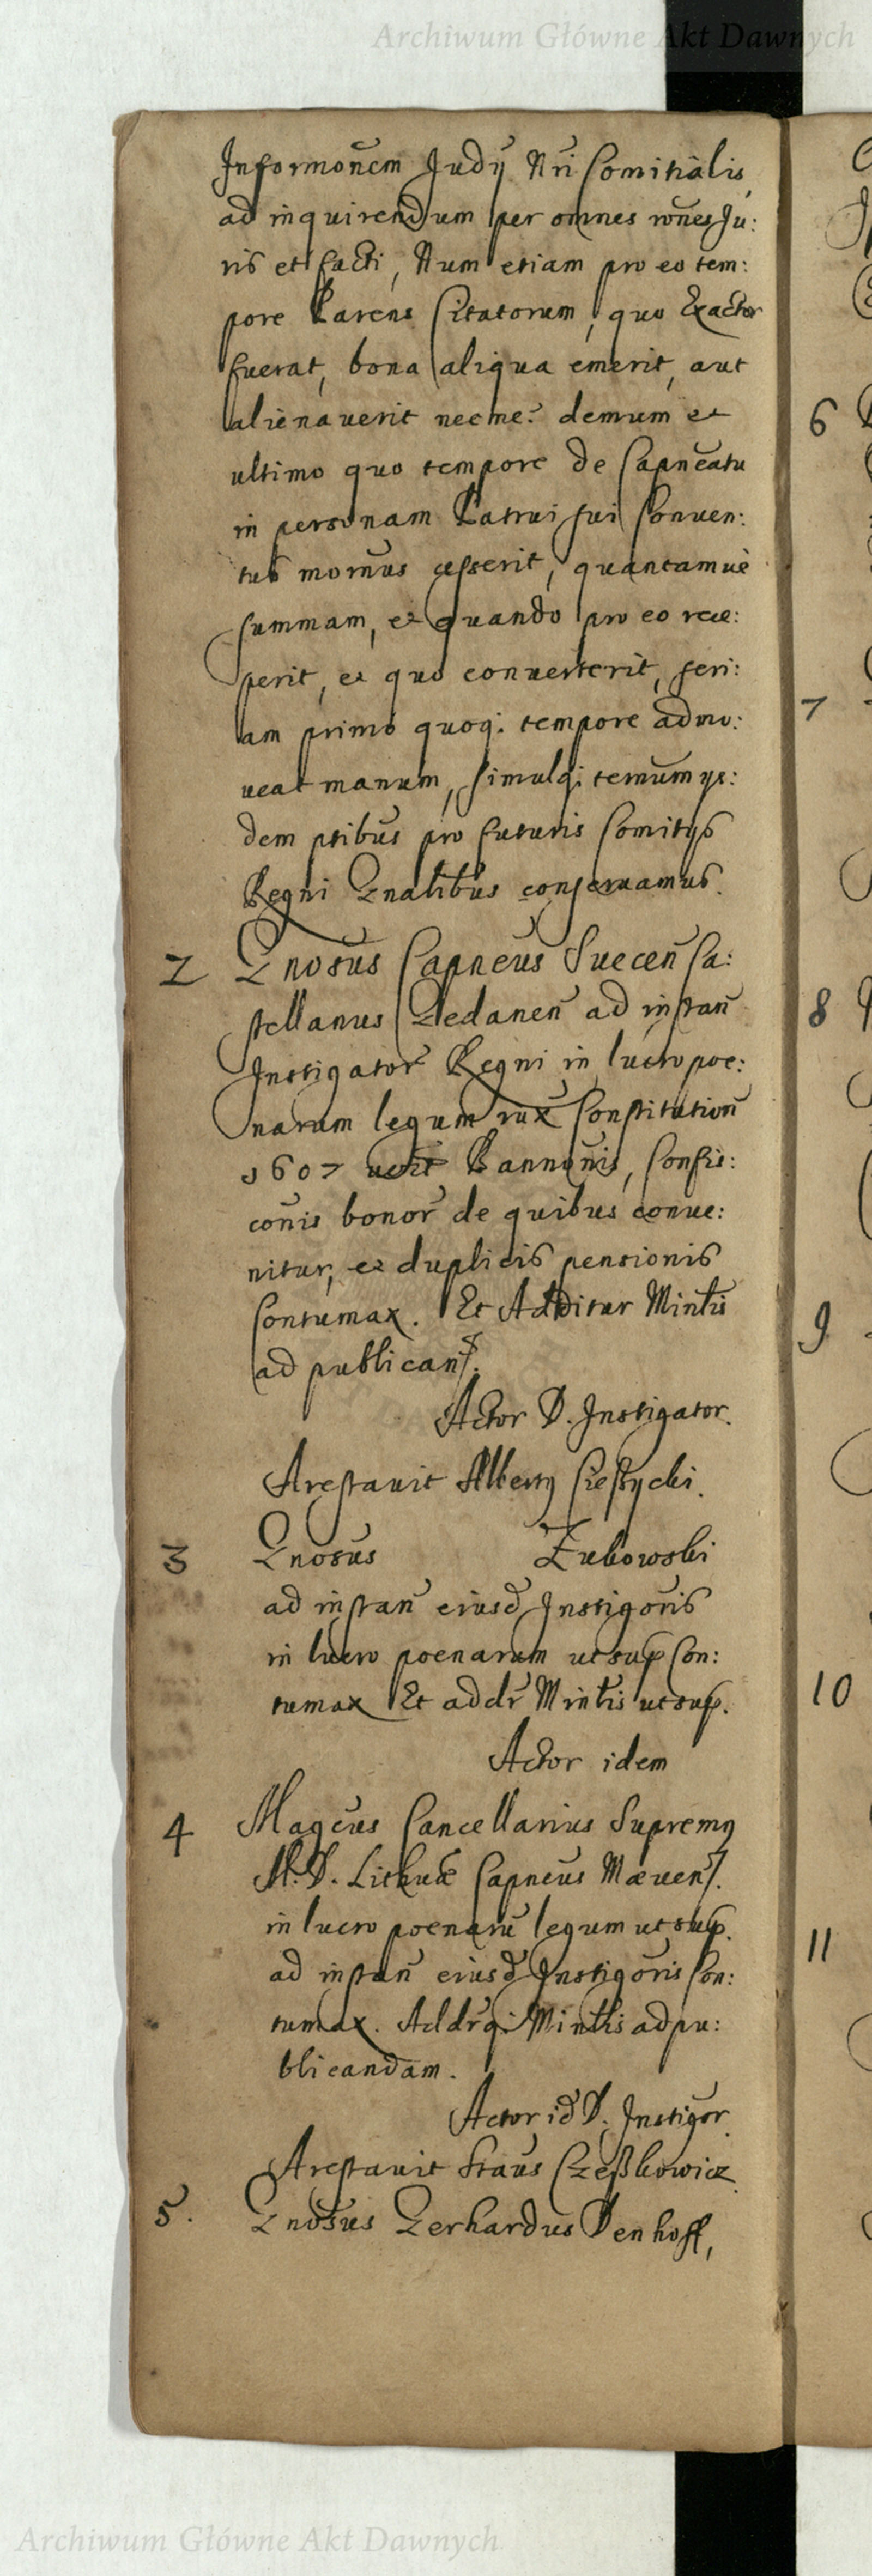 Archiwum Główne Akt Dawnych
Informonem Judÿ Nri Comitialis
ad inquirendum per omnes rones Ju:
ris et facti, Num etiam pro eo tem:
pore Parens Citatorum, quo Exactor
fuerat, bona aliqua emerit, aut
alienauerit necne? demum et
ultimo quo tempore de Capneatu
in personam Patrui sui Conuen:
tus mornus cesserit, quantamuè
summam, et quando pro eo rece:
perit, et quo conuerterit, seri:
am primo quoq. tempore admo:
ueat manum, simulq. temum ys:
dem ptibus pro futuris Comitÿs
Regni Gnalibus conseruamus.
2 Gnosus Capneus Suecen Ca:
stellanus Gedanen ad instan
Instigator Regni in lucro poe:
narum legum rux Constitution
1607 uert Bannonis, Confis:
conis bonor de quibus conue:
nitur, et duplicis pensionis
Contumax. Et Additur Mintis
ad publican.
Actor D. Instigator.
Arestauit Albertg
3 Gnosus Zubowski
ad instan eiusd Instigoris
in lucro poenarum ut sup Con:
tumax Et addr Mintis ut sup.
Actor idem
4 Magcus Cancellarius Supremg
M. D. Lithuae Capneus Mæuen.
in lucro poenaru legum ut sup.
ad instan eiusd Instigoris Con:
tumax. Addrq. Mintis ad pu:
blicandam.
Actor id D. Instigor
Arestauit Staus Czeßkowicz
5. Gnosus Gerhardus Denhoff,
6
7
8
9
10
11
Archiwum Główne Akt Dawnych